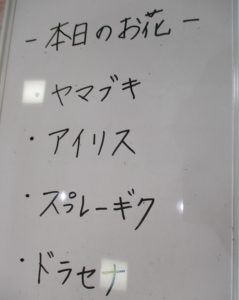 －本日のお花－
・ヤマブキ
・アイリス
・スプレーギク
・ドラセナ